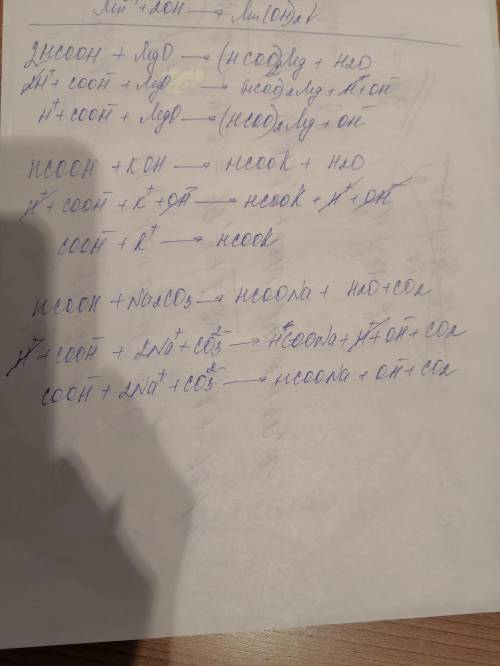 Mn²⁺ + 2OH⁻ → Mn(OH)₂↓
2HCOOH + MgO → (HCOO)₂Mg + H2O
2H⁺ + COOH⁻ + MgO → (HCOO)₂Mg + H⁺ + OH⁻
H⁺ + COOH⁻ + MgO → (HCOO)₂Mg + OH⁻
HCOOH + KOH → HCOOK + H2O
H⁺ + COOH⁻ + K⁺ + OH⁻ → HCOOK + H⁺ + OH⁻
COOH⁻ + K⁺ → HCOOK
HCOOH + Na2CO3 → HCOONa + H2O + CO2
H⁺ + COOH⁻ + 2Na⁺ + CO3²⁻ → HCOONa + H⁺ + OH⁻ + CO2
COOH⁻ + 2Na⁺ + CO3²⁻ → HCOONa + OH⁻ + CO2